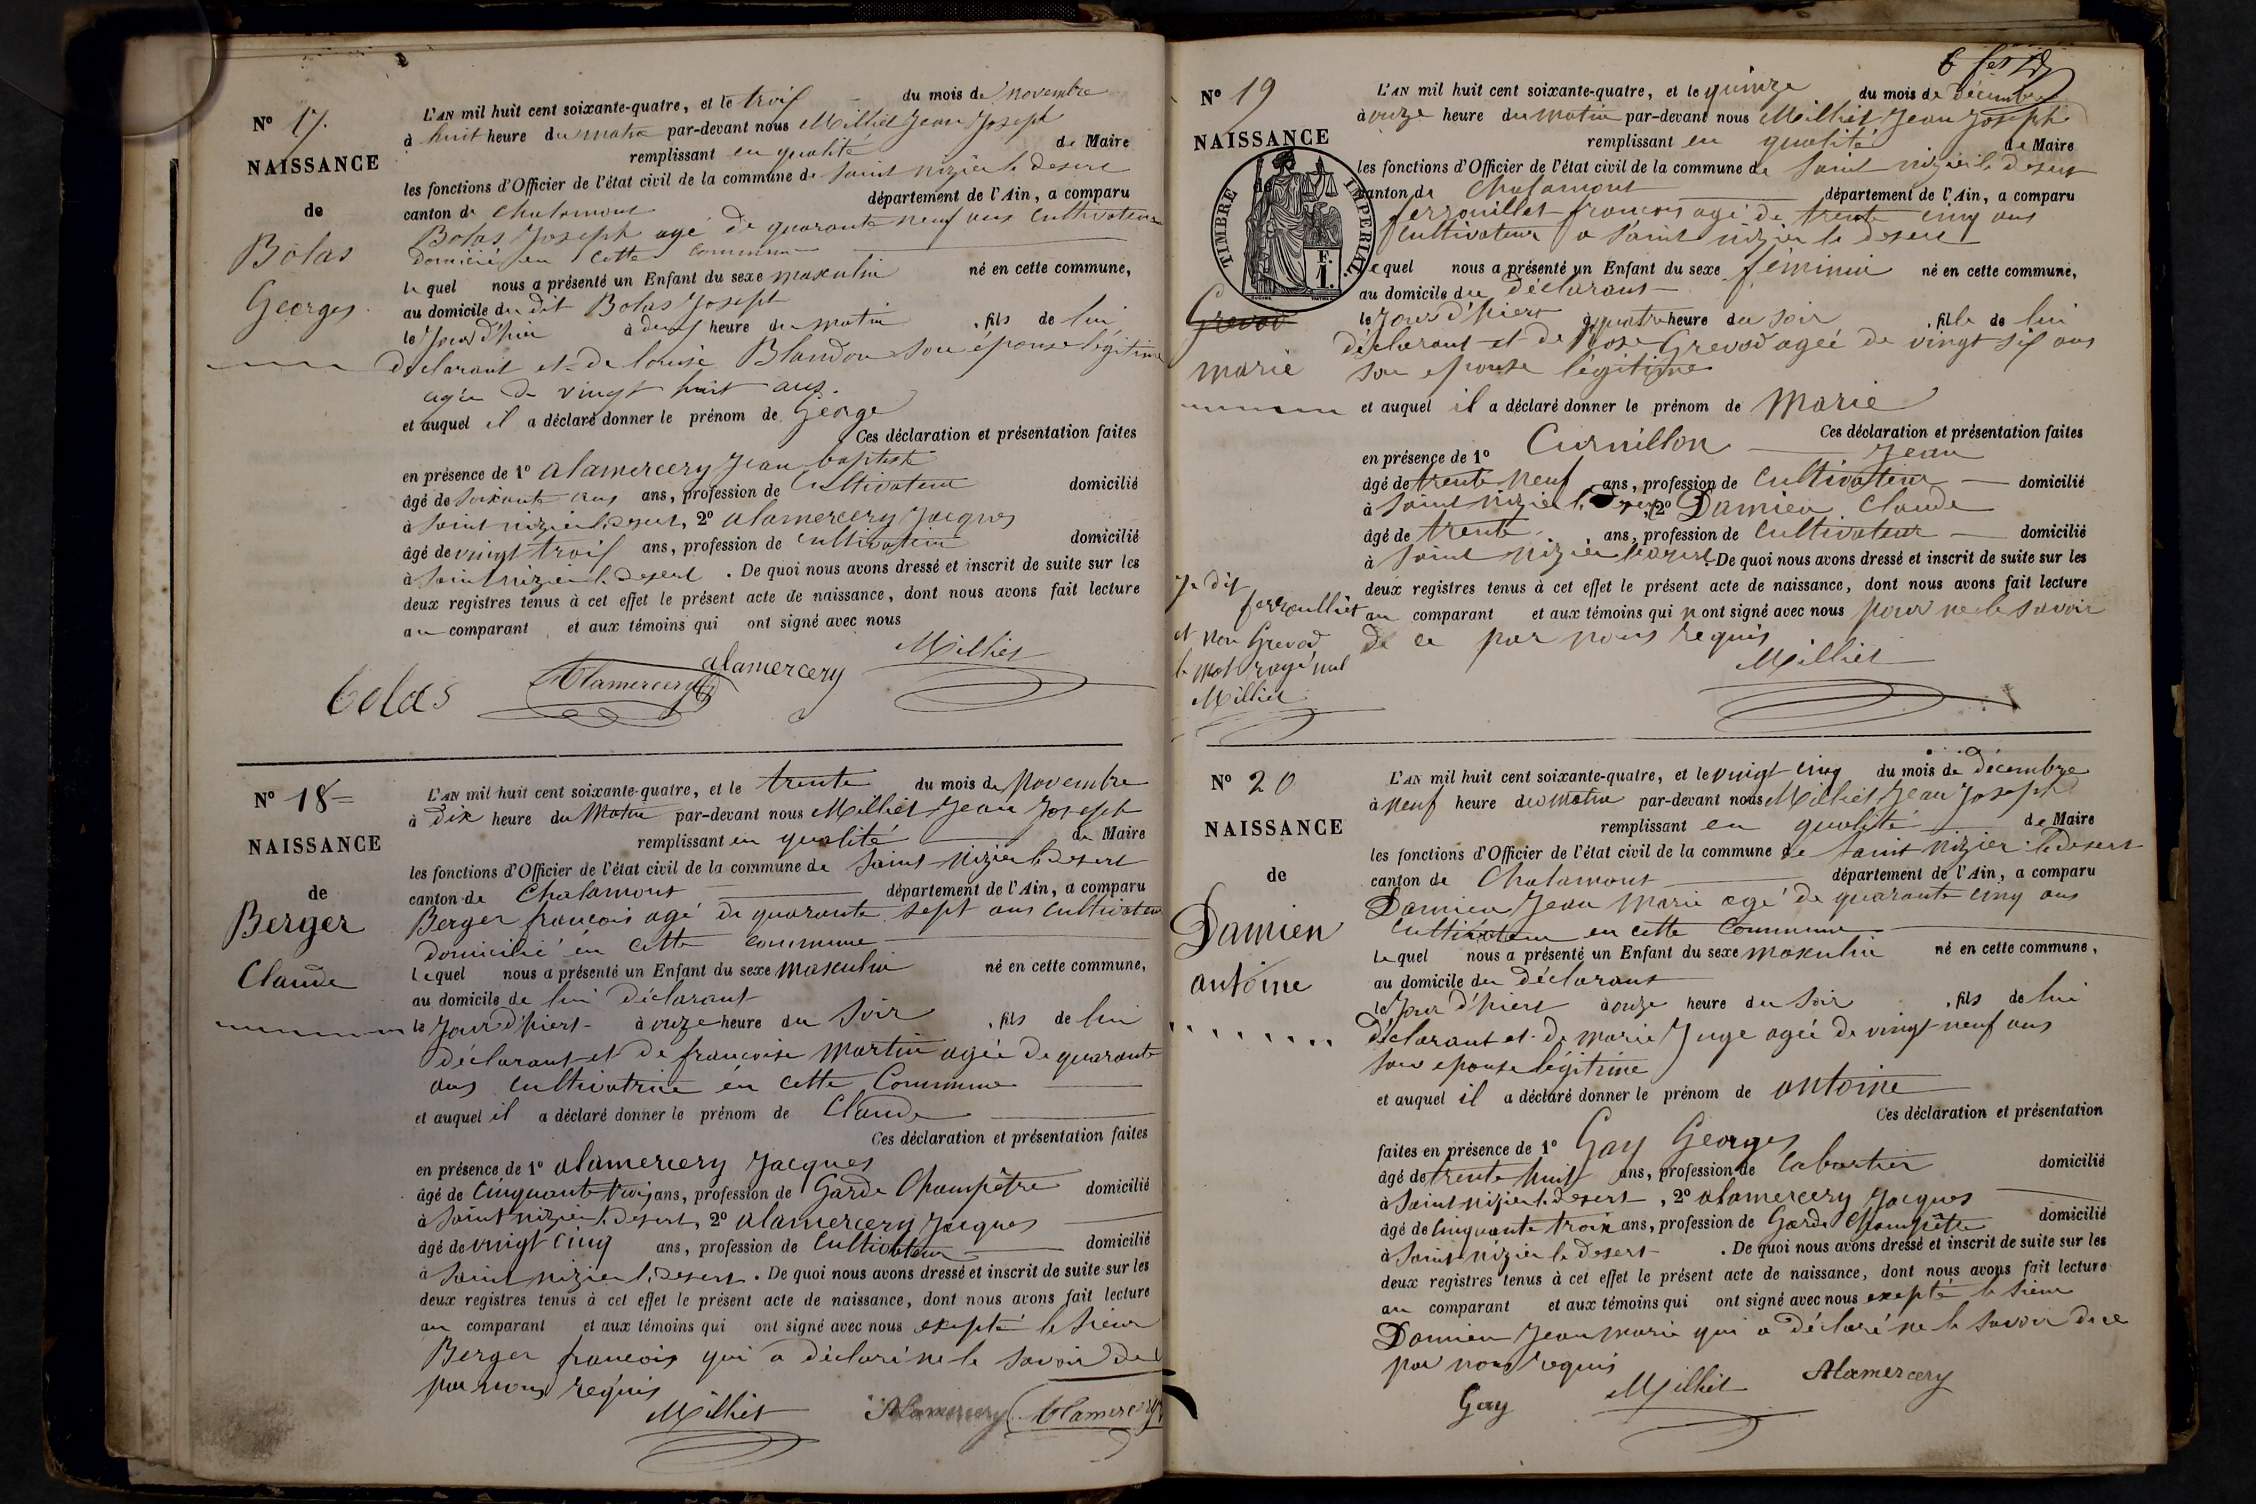 N° 17.
NAISSANCE
de
Bolas
Georges
L'AN mil huit cent soixante-quatre, et le trois du mois de novembre
à huit heure du matin par-devant nous Milliet Jean Joseph
remplissant en qualité de Maire
les fonctions d'Officier de l'état civil de la commune de Saint nizier le desert
canton de Chalamont département de l'Ain, a comparu
Bolas Joseph agé de quarante neuf ans cultivateur
domicilié en cette commune
le quel nous a présenté un Enfant du sexe masculin né en cette commune,
au domicile du dit Bolas Joseph
le Jour d'hier à deux heure du matin , fils de lui
déclarant et de louise Blandon son épouse légitime
agée de vingt huit ans.
et auquel il a déclaré donner le prénom de George
Ces déclaration et présentation faites
en présence de 1° alamercery Jean baptiste
âgé de soixante cinq ans, profession de Cultivateur domicilié
à Saint nizier le desert, 2° alamercery Jacques
âgé de vingt trois ans, profession de cultivateur domicilié
à Saint nizier le desert . De quoi nous avons dressé et inscrit de suite sur les
deux registres tenus à cet effet le présent acte de naissance, dont nous avons fait lecture
au comparant et aux témoins qui ont signé avec nous
Milliet
alamercery
Alamercery
bolas
N° 18=
NAISSANCE
de
Berger
Claude
L'AN mil huit cent soixante-quatre, et le trente du mois de Novembre
à dix heure du Matin par-devant nous Milliet Jean Joseph
remplissant en qualité de Maire
les fonctions d'Officier de l'état civil de la commune de Saint-Nizier le Desert
canton de Chalamont département de l'Ain, a comparu
Berger francois agé de quarante sept ans cultivateur
domicilié en cette commune
lequel nous a présenté un Enfant du sexe masculin né en cette commune,
au domicile de lui déclarant
le Jour d'hiers à onze heure du Soir , fils de lui
déclarant et de francoise Martin agée de quarante
ans cultivatrice en cette Commune
et auquel il a déclaré donner le prénom de Claude
Ces déclaration et présentation faites
en présence de 1° alamercery Jacques
âgé de cinquante trois ans, profession de Garde Champêtre domicilié
à Saint nizier le Desert, 2° alamercery Jacques
âgé de vingt cinq ans, profession de Cultivateur domicilié
à Saint nizier le Desert. De quoi nous avons dressé et inscrit de suite sur les
deux registres tenus à cet effet le présent acte de naissance, dont nous avons fait lecture
au comparant et aux témoins qui ont signé avec nous exepté le Sieur
Berger francois qui a déclaré ne le savoir de
par nous requis
Milliet Alamercery Alamercery
N° 19
NAISSANCE
TIMBRE IMPERIAL.
F.
1.
Grevod
marie
L'AN mil huit cent soixante-quatre, et le quinze du mois de décembre
à onze heure du matin par-devant nous Milliet Jean Joseph
remplissant en qualité de Maire
les fonctions d'Officier de l'état civil de la commune de Saint nizier le desert
canton de Chalamont département de l'Ain, a comparu
ferrouillet francois agé de trente cinq ans
cultivateur a Saint nizier le desert
lequel nous a présenté un Enfant du sexe féminin né en cette commune,
au domicile du déclarant
le Jour d'hiers à quatre heure du soir , fille de lui
déclarant et de Rose Grevod agée de vingt six ans
son epouse légitime
et auquel il a déclaré donner le prénom de Marie
Ces déclaration et présentation faites
en présence de 1° Curnillon Jean
âgé de trente neuf ans, profession de Cultivateur domicilié
à Saint nizier le Desert, 2° Damien Claude
âgé de trente ans, profession de Cultivateur domicilié
à Saint Nizier le desert. De quoi nous avons dressé et inscrit de suite sur les
deux registres tenus à cet effet le présent acte de naissance, dont nous avons fait lecture
au comparant et aux témoins qui n ont signé avec nous pour ne le savoir
de ce par nous requis
Milliet
Je dit
ferroulliet
et non Grevod
le mot rayé nul
Milliet
N° 20
NAISSANCE
de
Damien
antoine
L'AN mil huit cent soixante-quatre, et le vingt cinq du mois de décembre
à neuf heure du matin par-devant nous Milliet Jean Joseph
remplissant en qualité de Maire
les fonctions d'Officier de l'état civil de la commune de Saint Nizier le Desert
canton de Chalamont département de l'Ain, a comparu
Damien Jean Marie agé de quarante cinq ans
Cultivateur en cette Commune
le quel nous a présenté un Enfant du sexe masculin né en cette commune,
au domicile du déclarant
le Jour d'hiers à onze heure du Soir , fils de lui
déclarant et de marie Juge agée de vingt neuf ans
son epouse légitime
et auquel il a déclaré donner le prénom de antoine
Ces déclaration et présentation
faites en présence de 1° Gay Georges
âgé de trente huit ans, profession de Cabartier domicilié
à Saint nizier le desert, 2° alamercery Jacques
âgé de cinquante trois ans, profession de Garde Champêtre domicilié
à Saint nizier le Desert . De quoi nous avons dressé et inscrit de suite sur les
deux registres tenus à cet effet le présent acte de naissance, dont nous avons fait lecture
au comparant et aux témoins qui ont signé avec nous exepté le Sieur
Damien Jean marie qui a déclaré ne le savoir de ce
par nous requis
Gay Milliet Alamercery